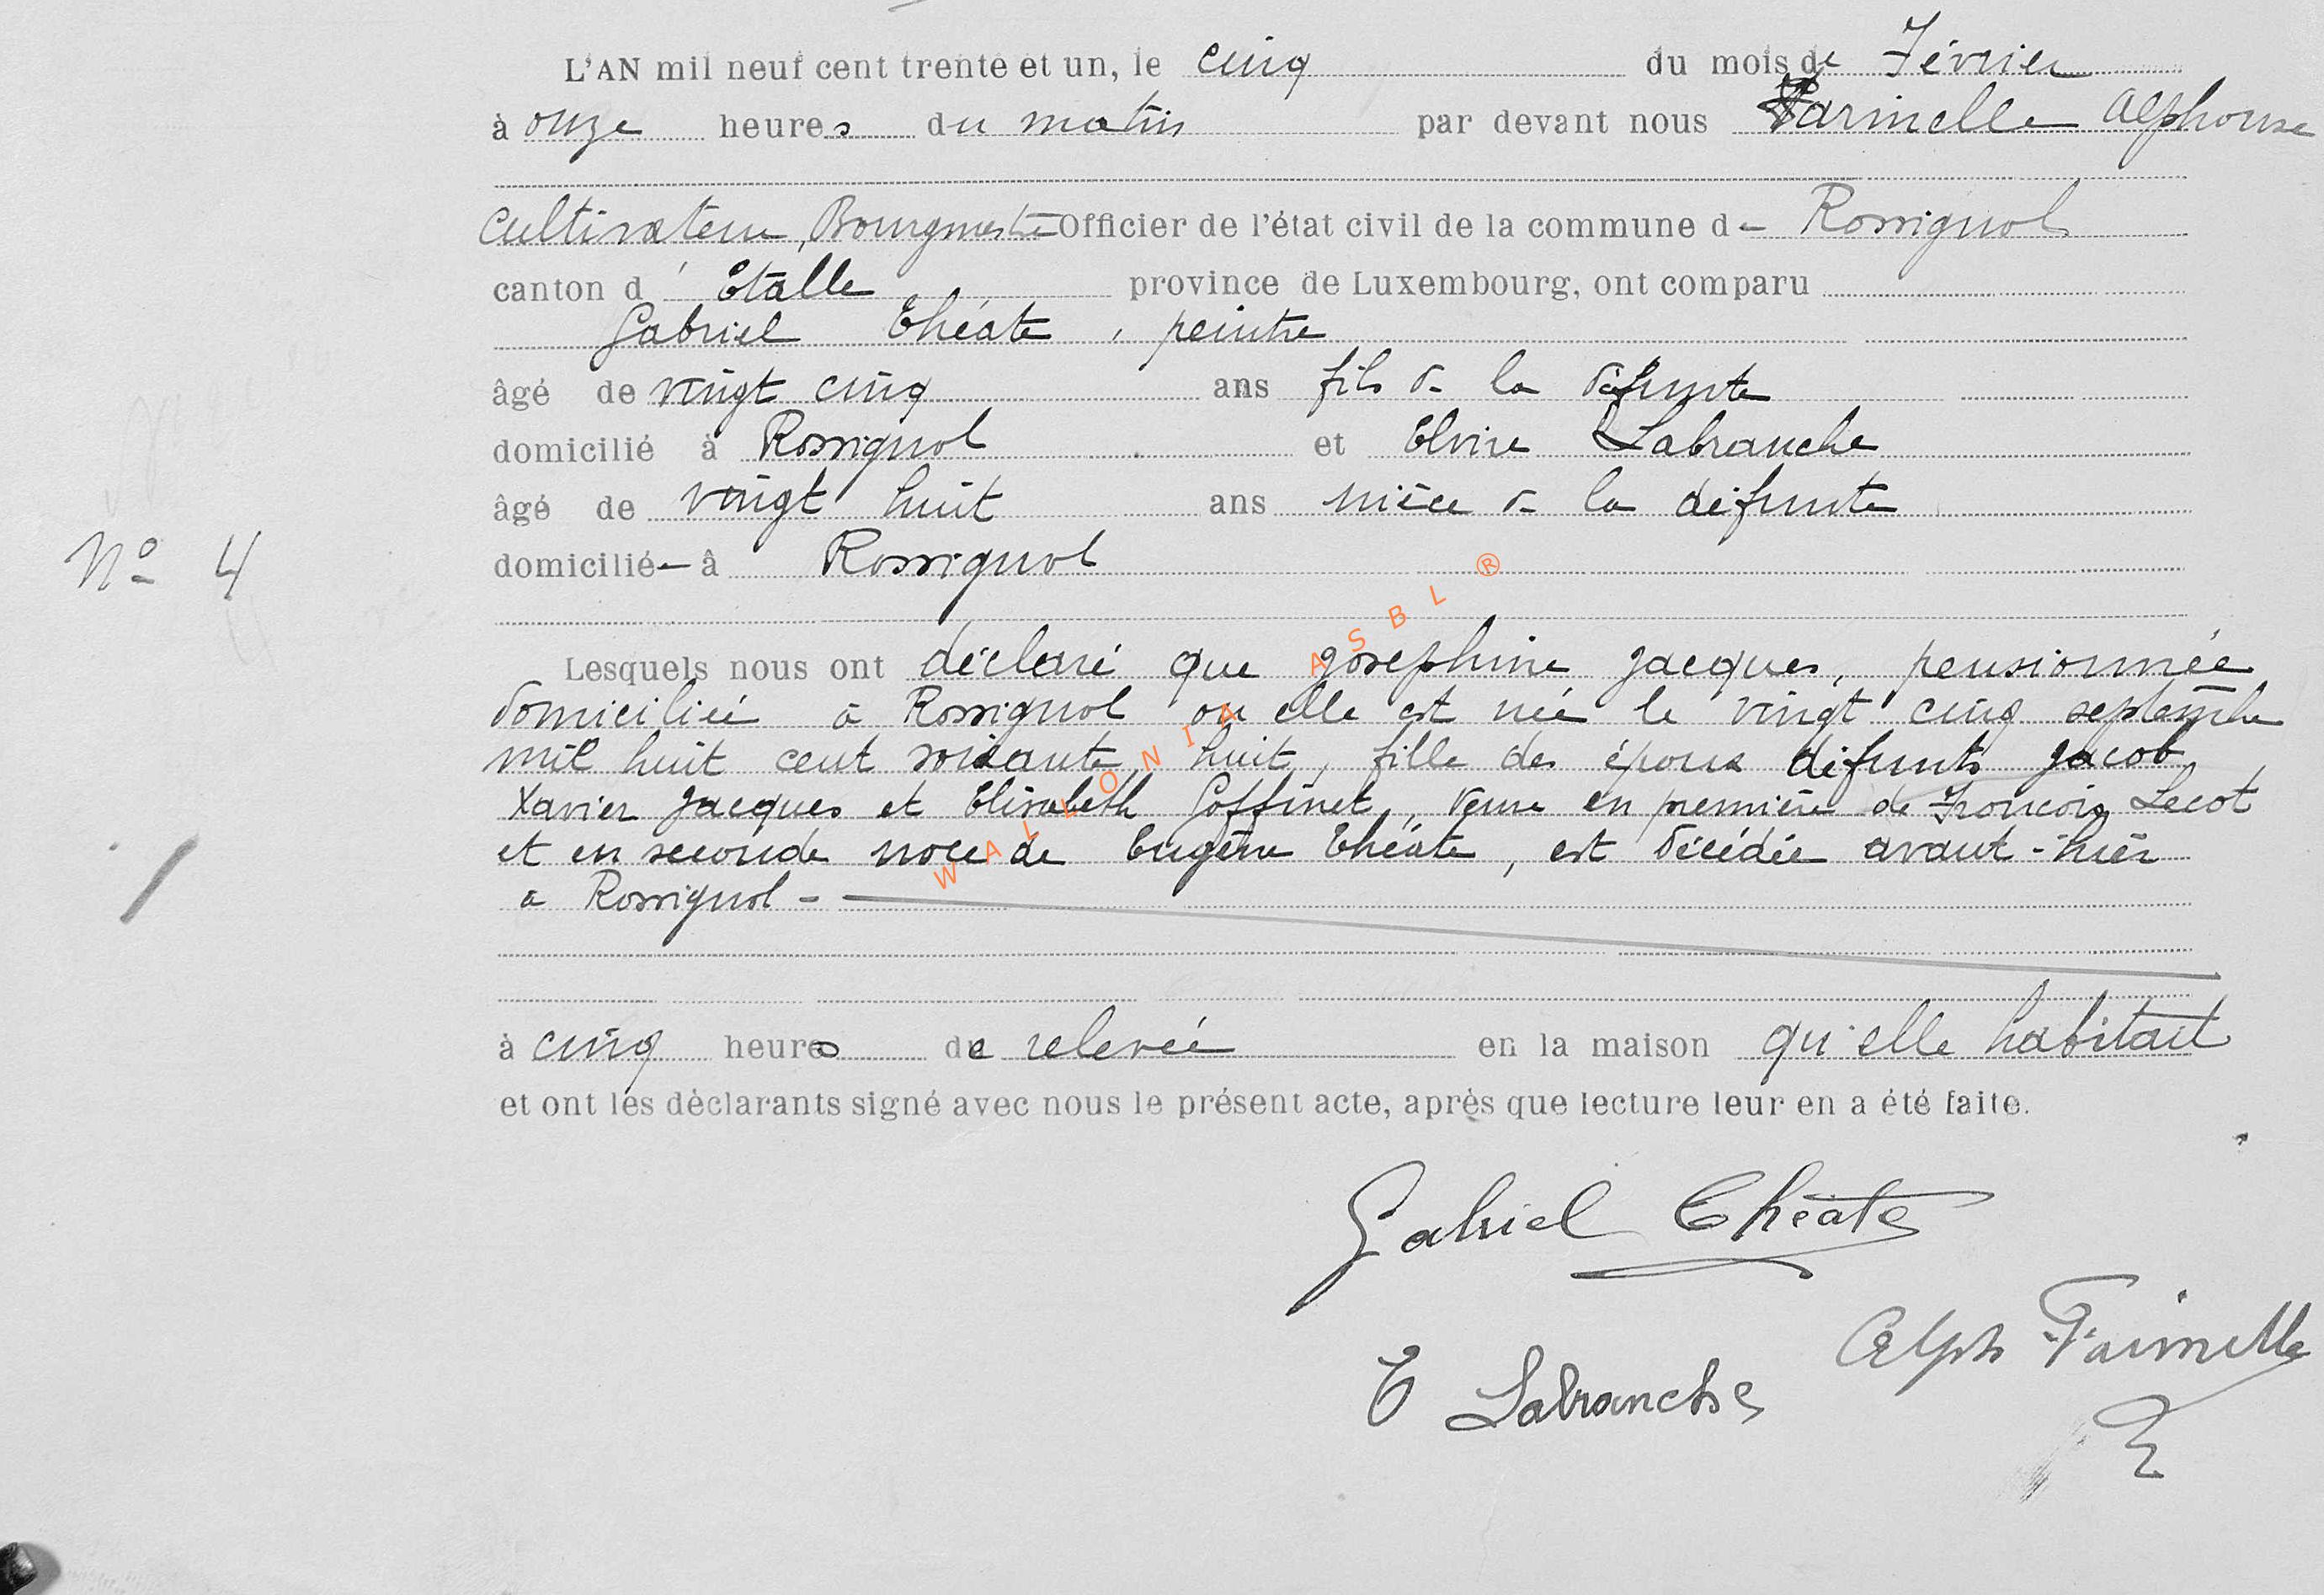 L'AN mil neuf cent trente et un, le cinq du mois de Février
à onze heures du matin par devant nous Farinelle Alphonse
Cultivateur, Bourgmestre Officier de l'état civil de la commune de Rossignol
canton d'Etalle province de Luxembourg, ont comparu
Gabriel Théate, peintre
âgé de vingt cinq ans fils de la défunte
domicilié à Rossignol et Elvire Labranche
âgé de vingt huit ans nièce de la défunte
N° 4
domicilié à Rossignol
Lesquels nous ont déclaré que Joséphine Jacques, pensionnée
domiciliée à Rossignol ou elle est née le vingt cinq septembre
mil huit cent soixante huit, fille des époux défunts Jacob
Xavier Jacques et Elisabeth Goffinet, veuve en première de François Lecot
et en seconde noce de Eugène Théate, est décédée avant-hier
a Rossignol -
à cinq heures de relevée en la maison qu'elle habitait
et ont les déclarants signé avec nous le présent acte, après que lecture leur en a été faite.
Gabriel Théate
Alph Farinelle
E Labranche
WALLONIA ASBL ®